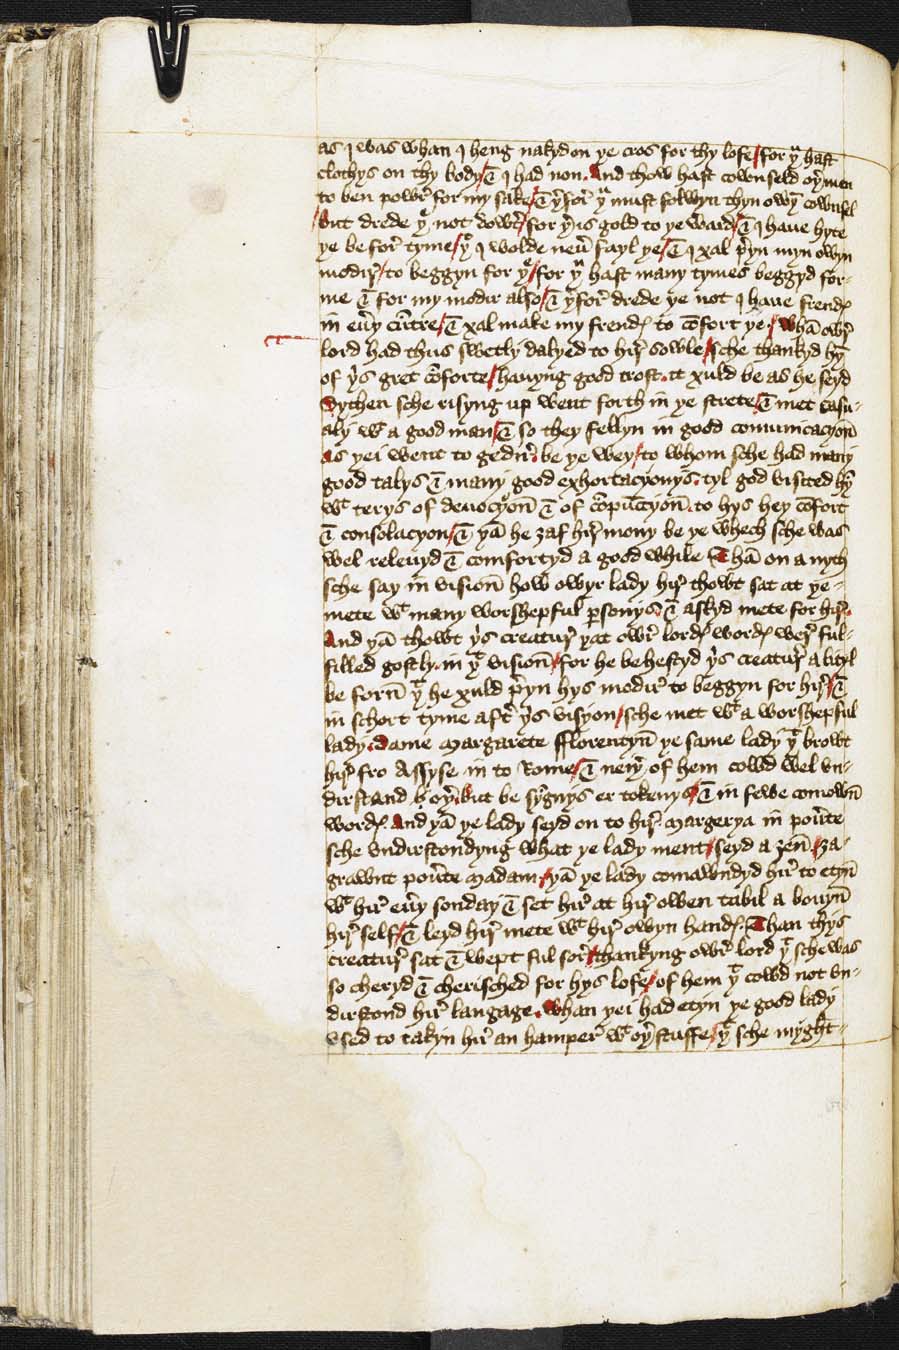 as I was whan I heng nakyd on yͤ cros for thy lofe / for yᵘ hast
clothys on thy body / & I had non. And thow hast cownseld oyͬ men
to ben powr̄ for my sake / & yͬfor̄ yᵘ must folwyn thyn owyn cownsel
But drede yͤ not dowtͬ / for yͬ is gold to ye ward / & I haue hyte
ye be for̄ tyme / yᵗ I wolde neuͬ fayl ye / & I xal p̄yn myn owyn
modir / to beggyn for yͤ / for yᵘ hast many tymes beggyd for
me & for my modir also / & yͬfor̄ drede ye not I haue frendꝭ
in eūy cūtre / & xal make my frendꝭ to cōfort ye / Whā owr̄
lord had thus swetly dalyed to hir sowle / sche thankyd hȳ
of yˢ gret cōforte / hauyng good trost. it xuld be as he seyd
Sythen sche risyng up went forth in ye strete / & met casu-
aly wᵗ a good man / & so they fellyn in good comunicacyon
as yei went to gedir̄. be ye wey / to whom sche had many
good talys & many good exhortacyonys. tyl god visited hȳ
wᵗ terys of deuocyon̄ & of cōpūccyon̄. to hys hey cōfort
& consolacyon / & yā he ȝaf hir mony be ye whech sche was
wel releuyd & comfortyd a good while Thā on a nyth
sche say in vision̄ how owyr lady hir thowt sat at ye
mete wᵗ many worshepful psonys. & askyd mete for hir.
And yā thowt yˢ creatur̄ yat owr̄ lordꝭ wordꝭ wer̄ ful-
filled gostly. in yᵗ vision̄ / for he behestyd yˢ creatur̄ a lityl
be forn̄ yᵗ he xuld p̄yn hys modir̄ to beggyn for hir / &
in schort tyme aftͬ yˢ vision / sche met wᵗ a worshepful
lady. Dame Margarete fflorentyn̄ ye same lady yᵗ browt
hir fro Assyse in to Rome / & neiyͬ of hem cowd wel vn-
dirstand oyͬ. but be sygnys er tokenys / & in fewe comown̄
wordꝭ. And yā ye lady seyd on to hir. Margerya in pou̅te
sche vndirstondyng what ye lady ment / seyd a ȝen̄ / ȝa
grawnt pou̅te Madam / yā ye lady comawndyd hir̄ to etyn̄
wᵗ hir̄ eūy sonday & set hir̄ at hir̄ owen tabil a bouyn̄
hir self / & leyd hir mete wᵗ hir owyn handꝭ. Than thys
creatur̄ sat & wept ful sor̄ / thankyng owr̄ lord yᵗ sche was
so cheryd & cherisched for hys lofe / of hem yᵗ cowd not vn-
dirstond hir̄ langage. whan yei had etyn ye good lady
vsed to takyn hir̄ an hamper wᵗ oyͬ stuffe / yᵗ sche myght